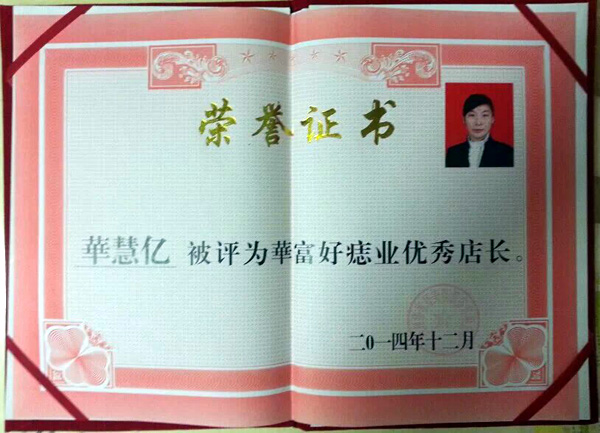 荣誉证书
華慧亿 被评为華富好痣业优秀店长。
二0一四年十二月